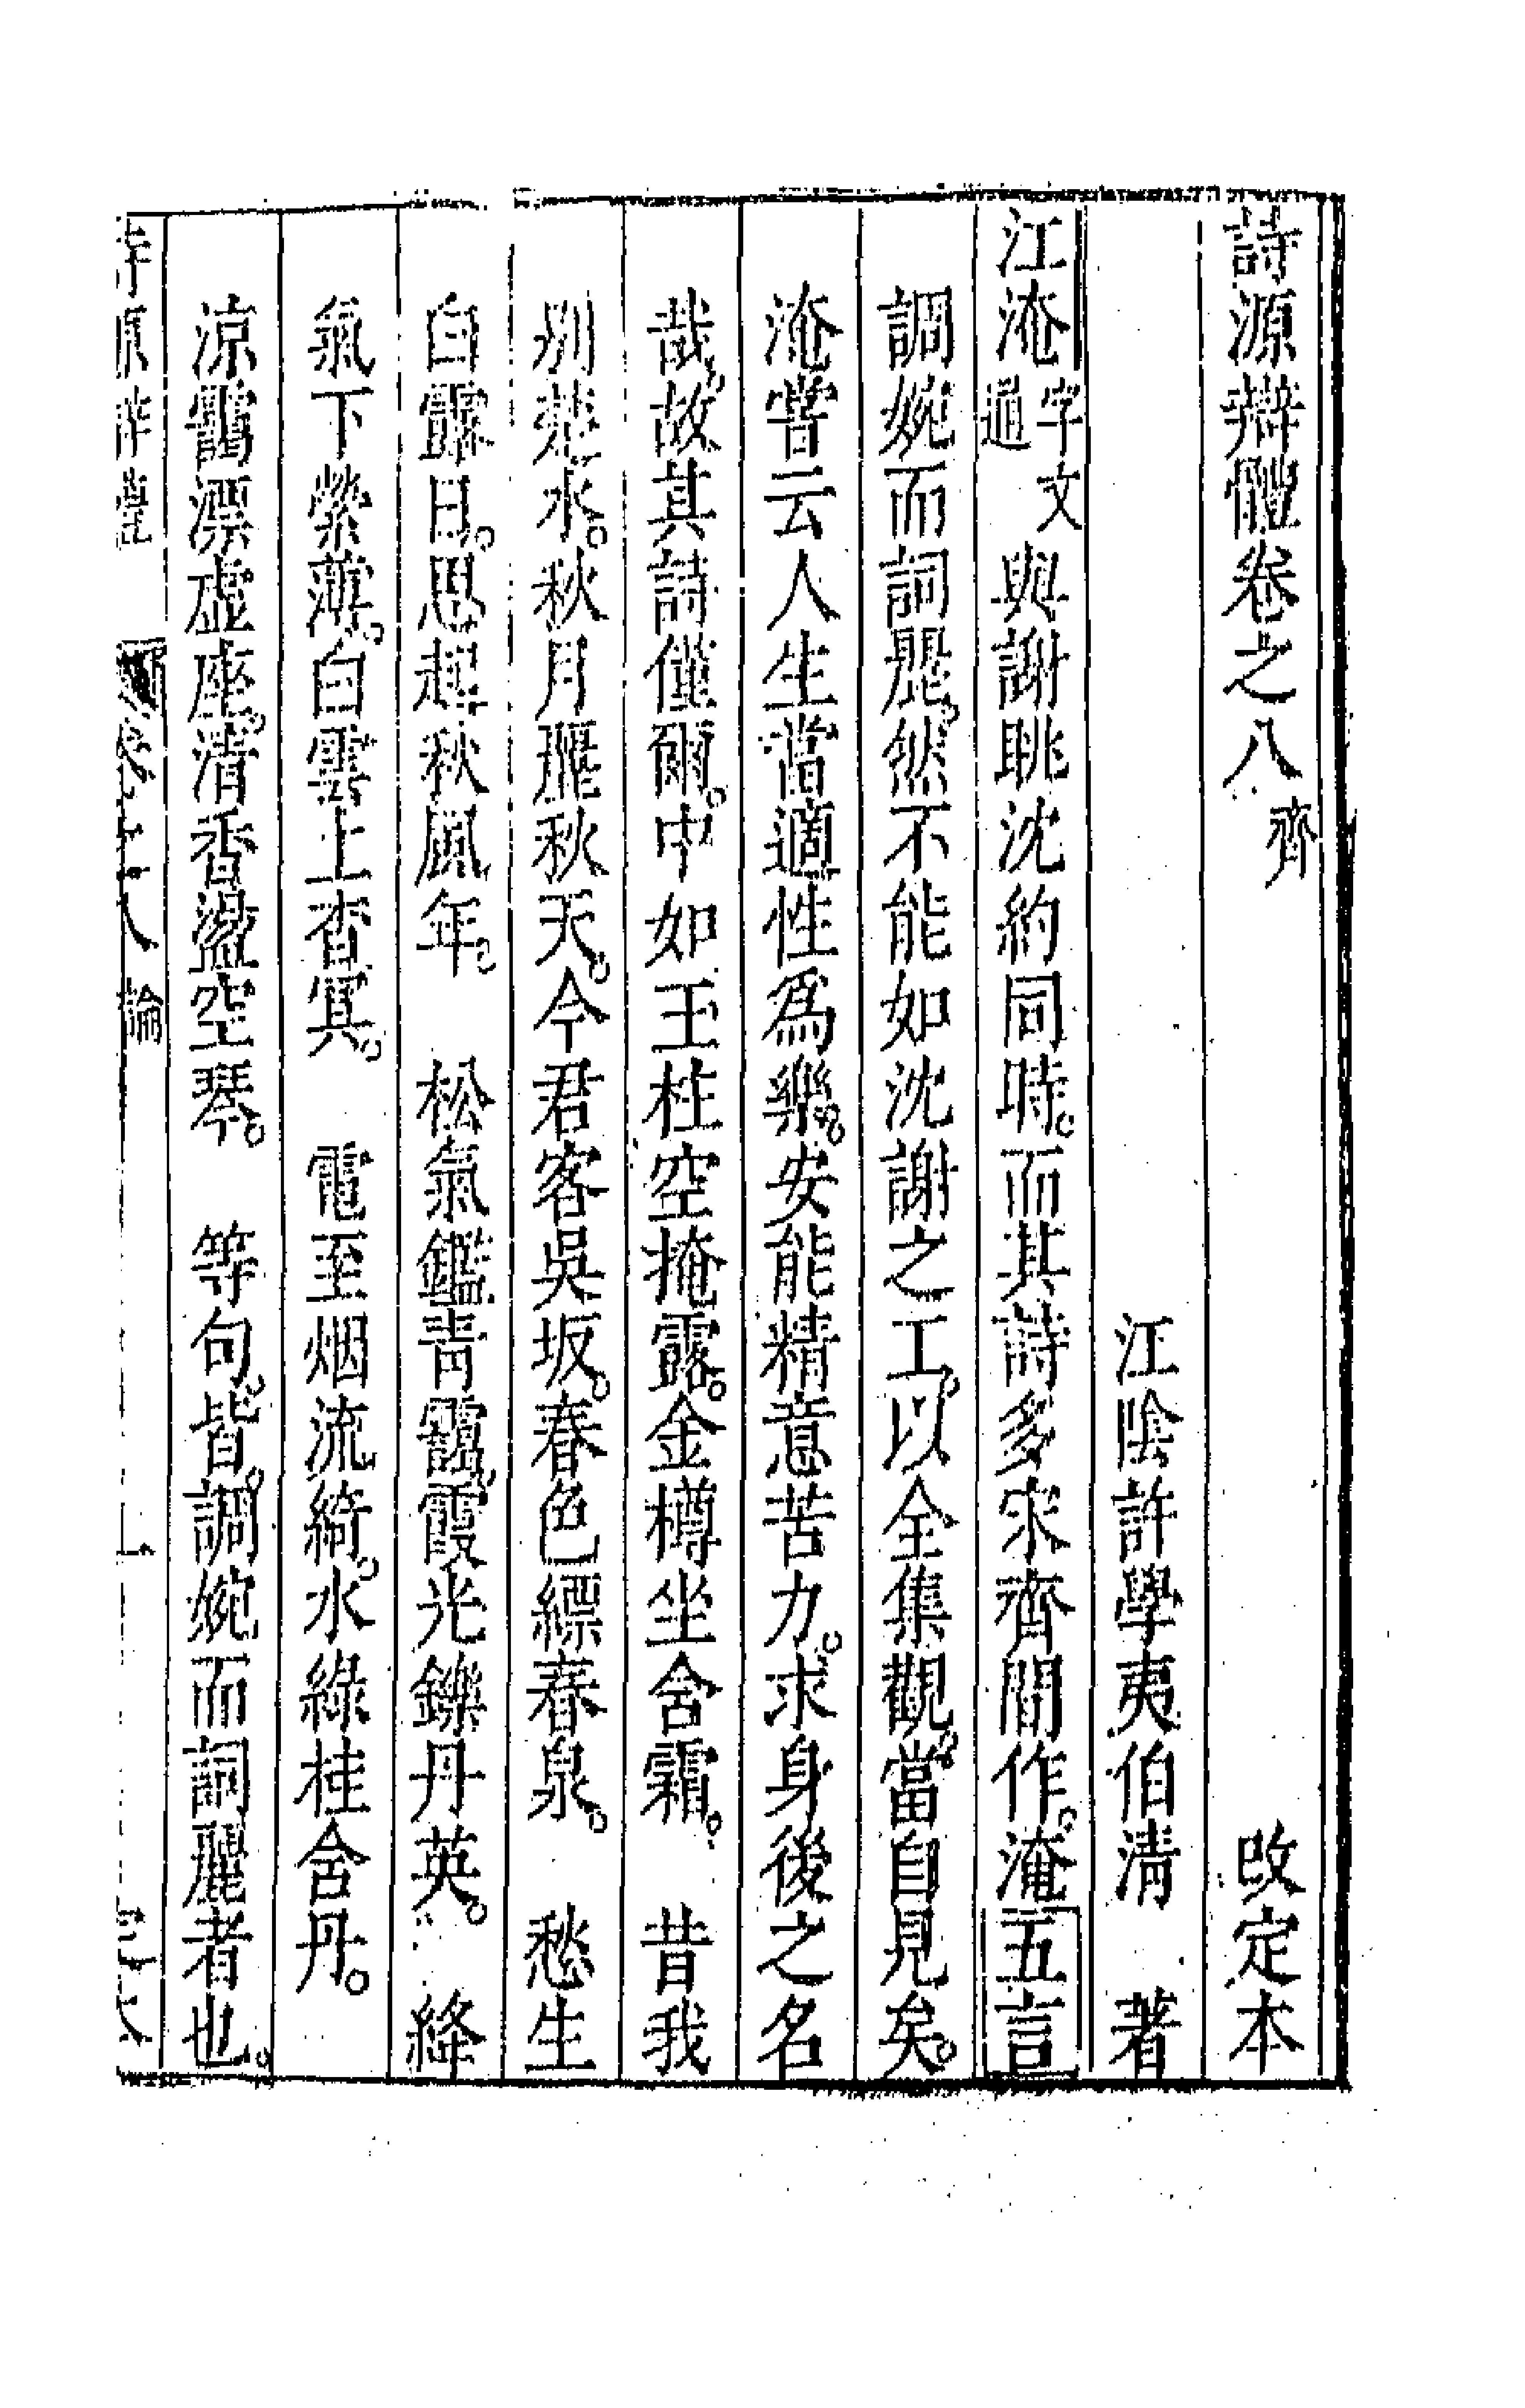 詩源辯體卷之八 齊 改定本
江陰許學夷伯清 著
江淹字文通與謝眺沈約同時。而其詩多宋齊間作。淹五言
調婉而詞麗。然不能如沈謝之工。以全集觀。當自見矣。
淹嘗云人生當適性爲樂。安能精意苦力。求身後之名
哉。故其詩僅爾。中如玉柱空掩露。金樽坐含霜。 昔我
別楚水。秋月麗秋天。今君客吳坂。春色縹春泉。 愁生
白露日。思起秋風年。 松氣鑑青靄。霞光鑠丹英。 絳
氣下縈薄。白雲上杳冥。 電至烟流綺。水綠桂含丹。
涼靄漂虛座。清香盪空琴。 等句。皆。調婉而詞麗者也。
詩源辯體 卷之八 論